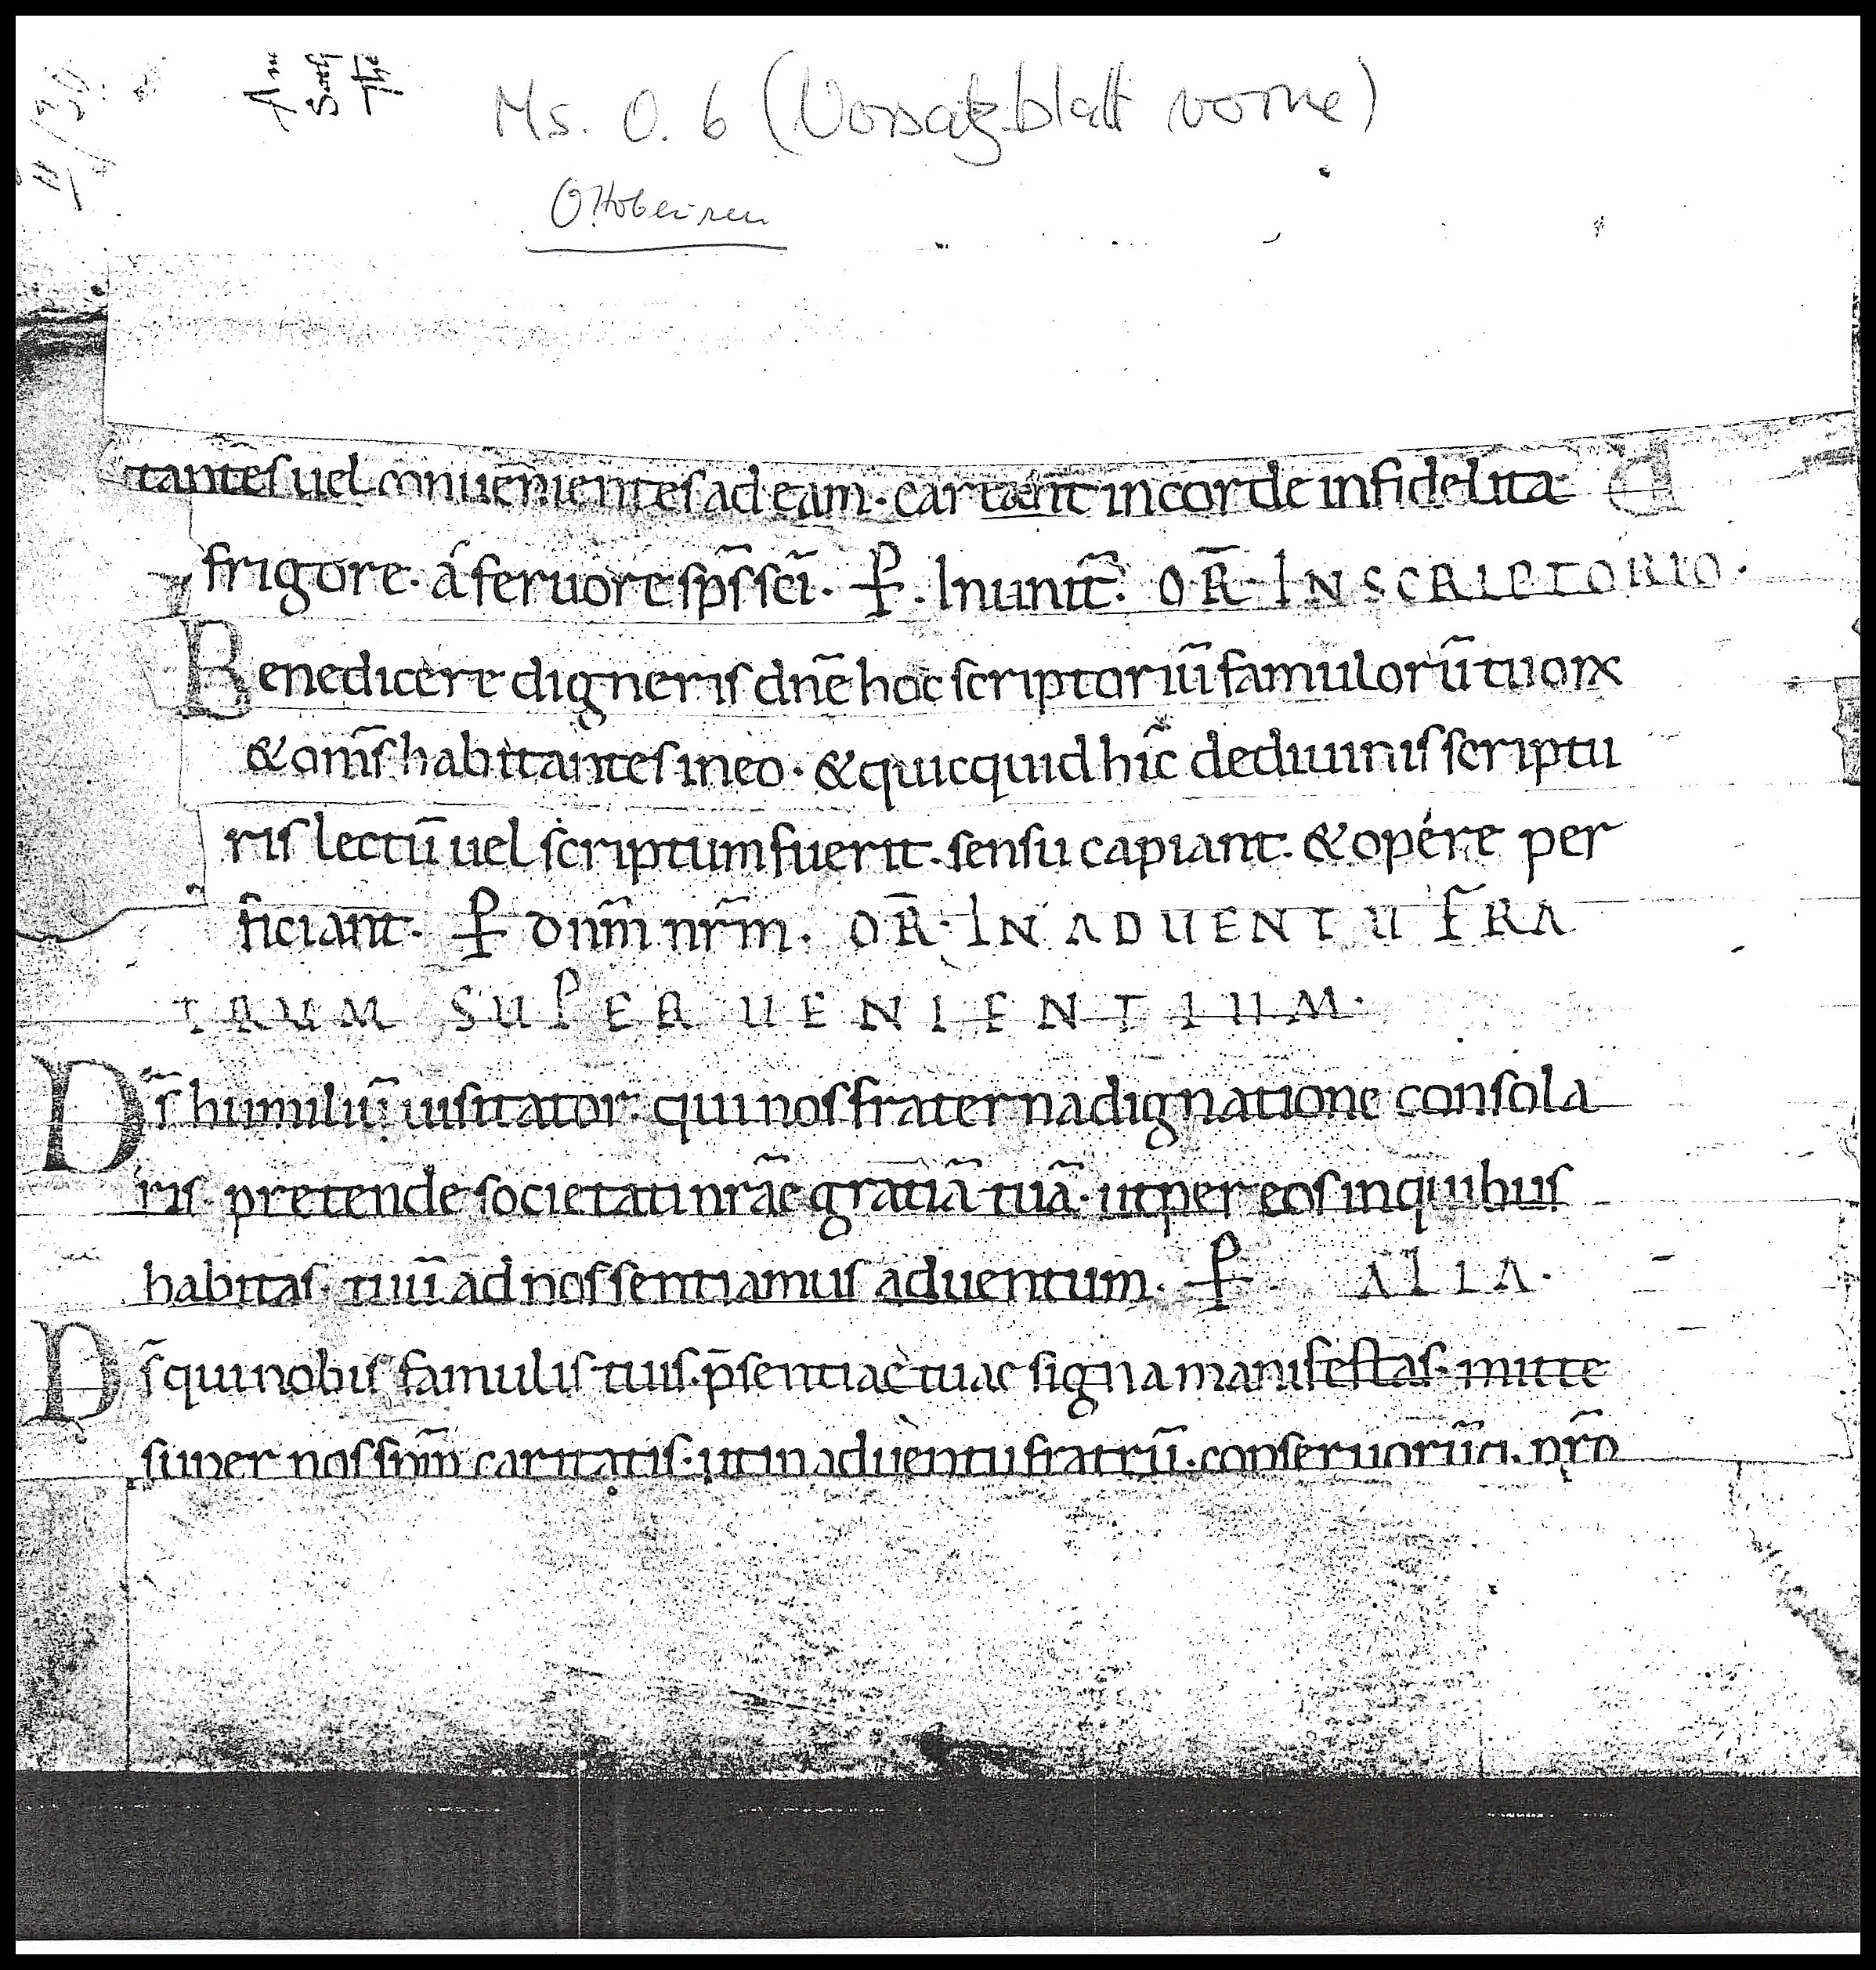 Ms. O. 6 (Vorsatzblatt vorne)
Ottobeuren
tantes uel conuenientes ad eam · careant in corde infidelita
frigore · a feruore sp̄s sc̄i · ꝑ · In unit̄ · OR̄ · IN SCRIPTORIO ·
Benedicere digneris dn̄e hoc scriptoriū famulorū tuoꝝ
& om̄s habitantes in eo · & quicquid hic̄ de diuinis scriptu
ris lectū uel scriptum fuerit · sensu capiant · & opére per
ficiant · ꝑ dnm̄ nr̄m · OR̄ · IN ADUENTU FRA
TRUM SUPER UENIENTIUM ·
Ds̄ humiliū uisitator · qui nos fraterna dignatione consola
ris · pretende societati nr̄ae gratiā tuā · ut per eos in quibus
habitas · tuū ad nos sentiamus aduentum · ꝑ ALIA ·
Ds̄ qui nobis famulis tuis · p̄sentiae tuae signa manifestas · mitte
super nos sp̄m caritatis · ut in aduentu fratrū · conseruorūq · nr̄o